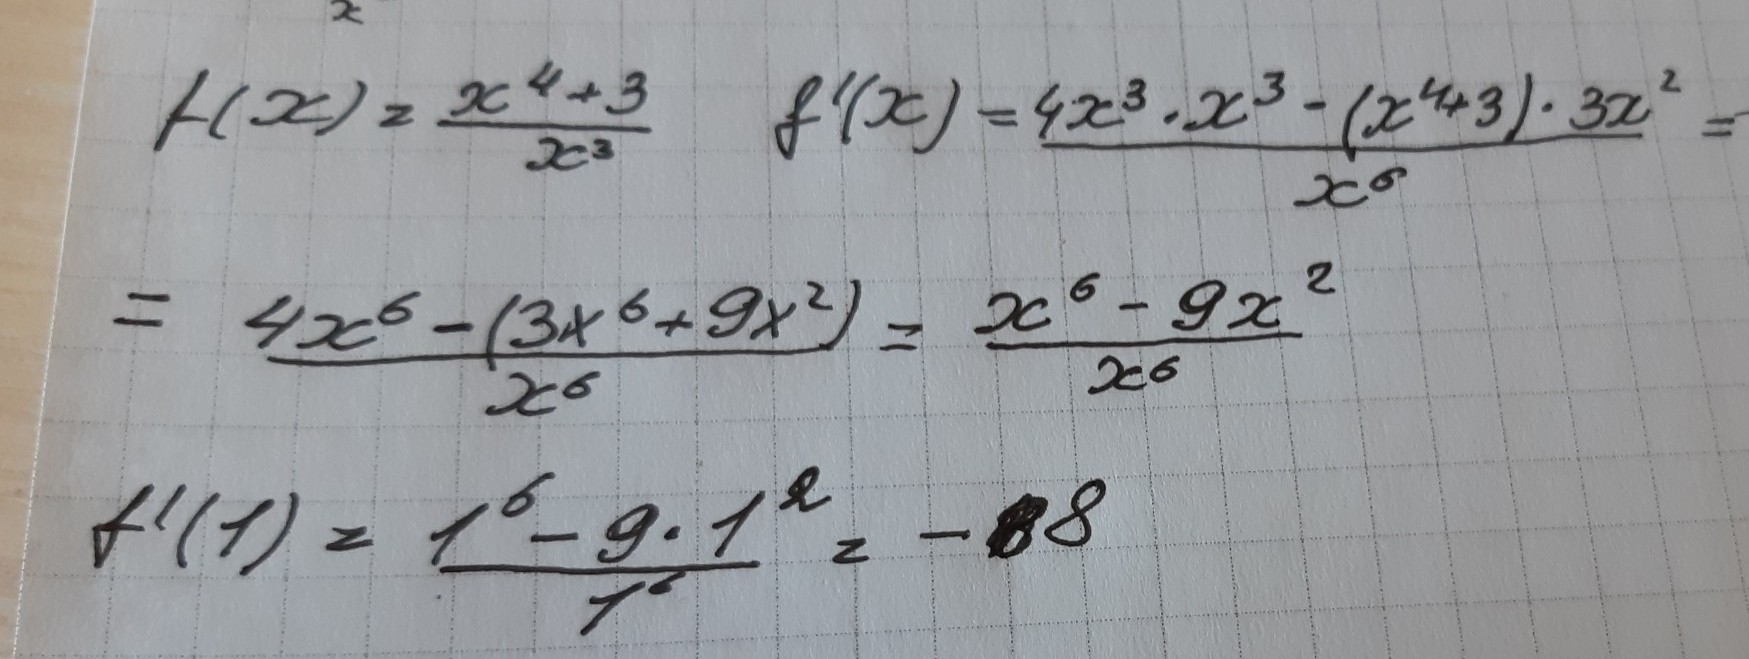 x
f(x) = (x^4+3)/(x^3) f'(x) = (4x^3·x^3-(x^4+3)·3x^2)/(x^6) =
= (4x^6-(3x^6+9x^2))/(x^6) = (x^6-9x^2)/(x^6)
f'(1) = (1^6-9·1^2)/(1^6) = -8